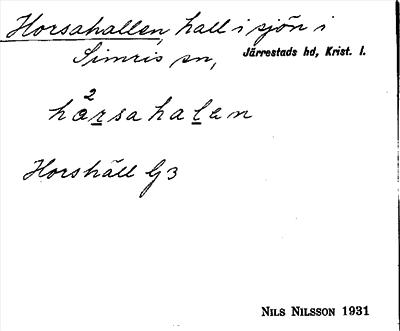 Horsahallen, hall i sjön i
Simris sn, Järrestads hd, Krist. l.
ho²rsahalen
Horshäll G3
NILS NILSSON 1931